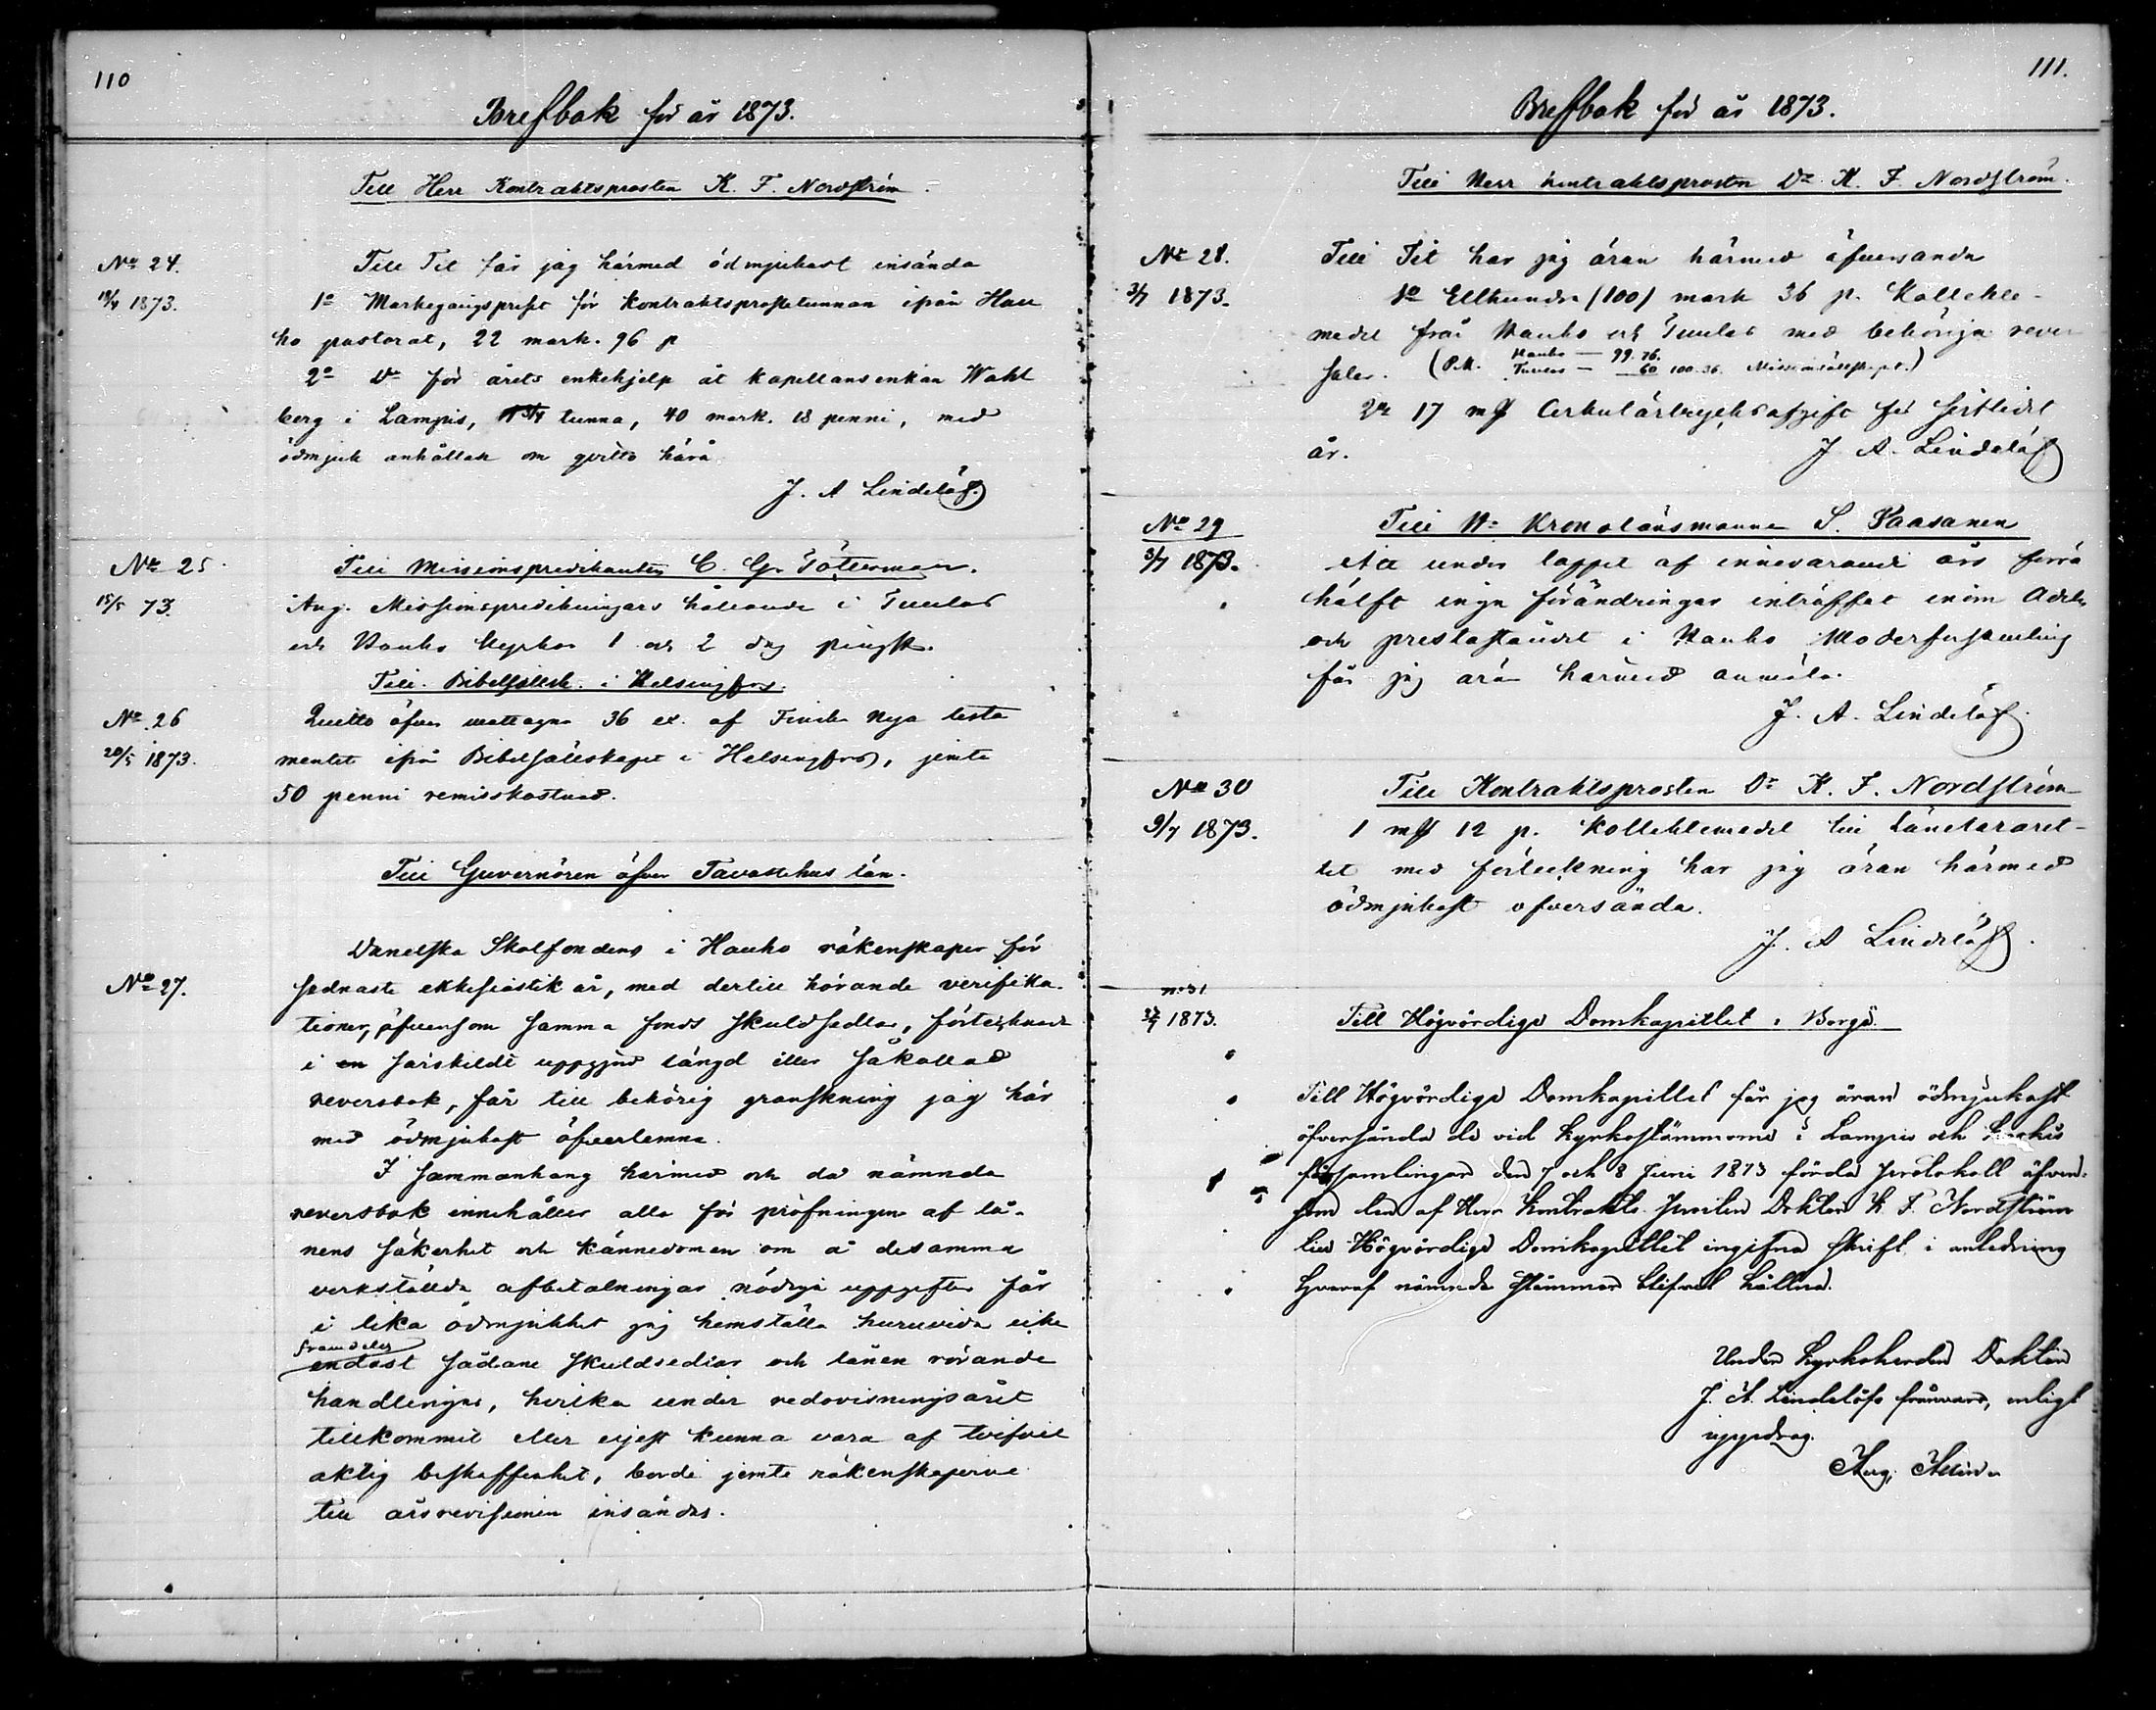 110
Brefbok för år 1873.
Till Herr Kontraktsprosten K. F. Nordström.
No 24.
Till Tit får jag härmed ödmjukast insända
18/4 1873.
1o Markegångspriset för Kontraktsprostetunnan ifrån Hau
ho pastorat, 22 mark. 96 p
2o Do för årets enkehjelp åt kapellansenkan Wahl
berg i Lampis, 1 3/4 tunna, 40 mark. 18 penni, med
ödmjuk anhållan om qvitto härå
J. A Lindelöf.
No 25.
Till Missionspredikanten C. G. Tötterman.
15/5 73.
Ang. Missionspredikningars hållande i Tuulos
och Hauho kyrkor 1 och 2 dag pingst.
Till Bibelsällsk. i Helsingfors.
No 26
Quitto öfver mottagna 36 ex. af Finska Nya testa
20/5 1873.
mentet ifrån Bibelsällskapet i Helsingfors, jemte
50 penni remisskostnad.
Till Guvernören öfver Tavastehus län.
Danelska Skolfondens i Hauho räkenskaper för
No 27.
sednaste ekklesiastik år, med dertill hörande verifika-
tioner, äfvensom samma fonds skuldsedlar, förtecknade
i en särskildt uppgjord längd eller såkallad
reversbok, får till behörig granskning jag här
med ödmjukast öfverlemna.
I sammanhang härmed och då nämnda
reversbok innehåller alla för pröfningen af lå-
nens säkerhet och kännedomen om å desamma
verkställda afbetalningar nödiga uppgifter får
i lika ödmjukhet jag hemställa huruvida icke
framdeles
endast sådane skuldsedlar och lånen rörande
handlingar, hvilka under redovisningsåret
tillkommit eller eljest kunna vara af tvifvel
aktig beskaffenhet, borde jemte räkenskaperne
till årsrevisionen insändas.
111.
Brefbok för år 1873.
Till Herr Kontraktsprosten Dr K. F. Nordström.
No 28.
Till Tit har jag äran härmed äfversända
3/7 1873.
1o Etthundra (100) mark 36 p. Kollekte-
medel från Hauho och Tuulos med behöriga rever
saler. (P.M. Hauho — 99.76.
Tuulos — 60 100.36. Missionssällskapet.)
2o 17 mk Cirkulärtrycksafgift för
år.
J A. Lindelöf
No 29
Till Hr Kronolänsmannen S. Paasanen
3/7 1873.
Att under loppet af innevarande års förra
hälft inga förändringar inträffat inom Adels
och presteståndet i Hauho Moderförsamling
får jag äran härmed anmäla.
J. A. Lindelöf.
No 30
Till Kontraktsprosten Dr K. F. Nordström
9/7 1873.
1 mk 12 p. Kollektemedel till Länelararet-
tet med förteckning har jag äran härmed
ödmjukast öfversända.
J. A Lindelöf.
No 31
1873.
Till Högvördiga Domkapitlet i Borgå.
Till Högvördiga Domkapitlet får jag äran ödmjukast
öfversända de vid kyrkostämmorna i Lampis och
församlingar den 7 och 8 Juni 1873 förda protokoll äfven-
som den af Herr Kontrakts Prosten Doktor K. F. Nordström
till Högvördiga Domkapitlet ingifna skrift i anledning
hvaraf nämnda stämmor blifvit hållna.
Under Kyrkoherden Doktor
J. A. Lindelöfs frånvaro, enligt
uppdrag.
Aug.